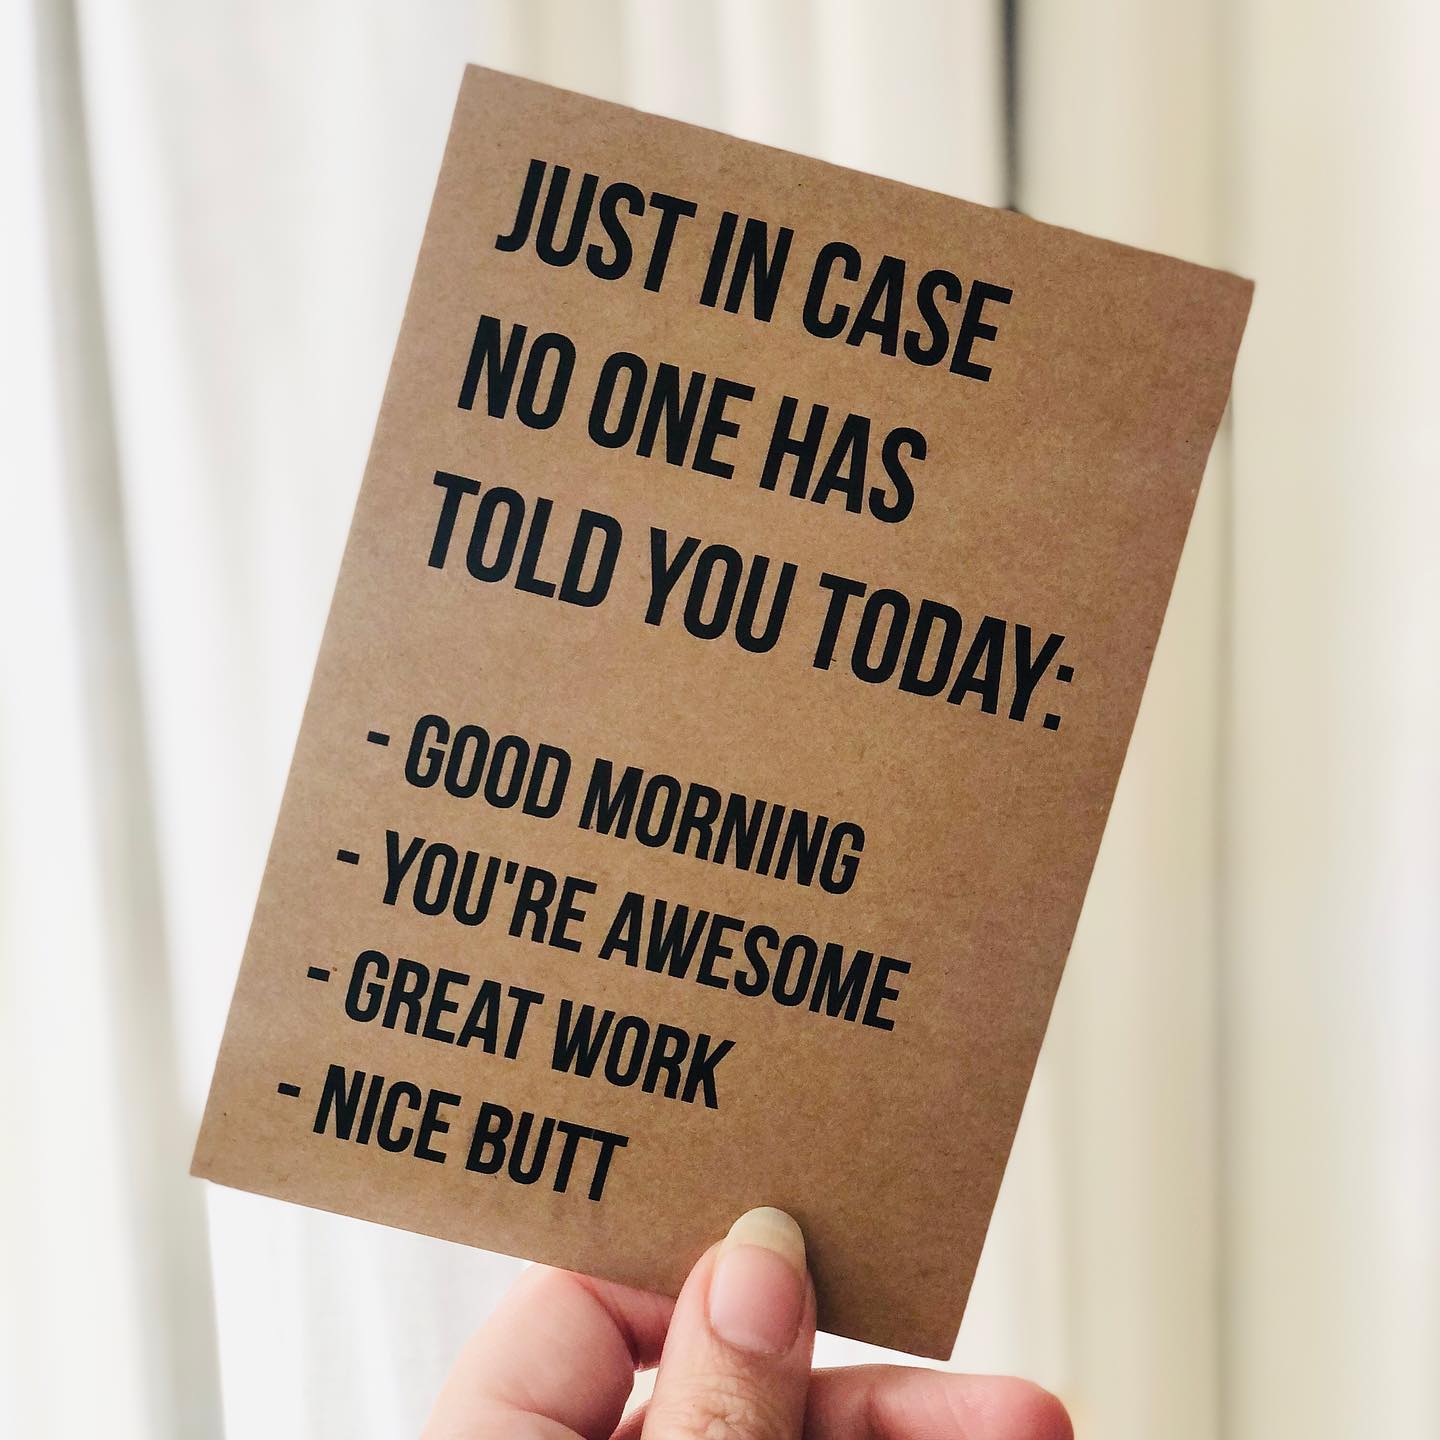 JUST IN CASE
NO ONE HAS
TOLD YOU TODAY:
- GOOD MORNING
- YOU'RE AWESOME
- GREAT WORK
- NICE BUTT